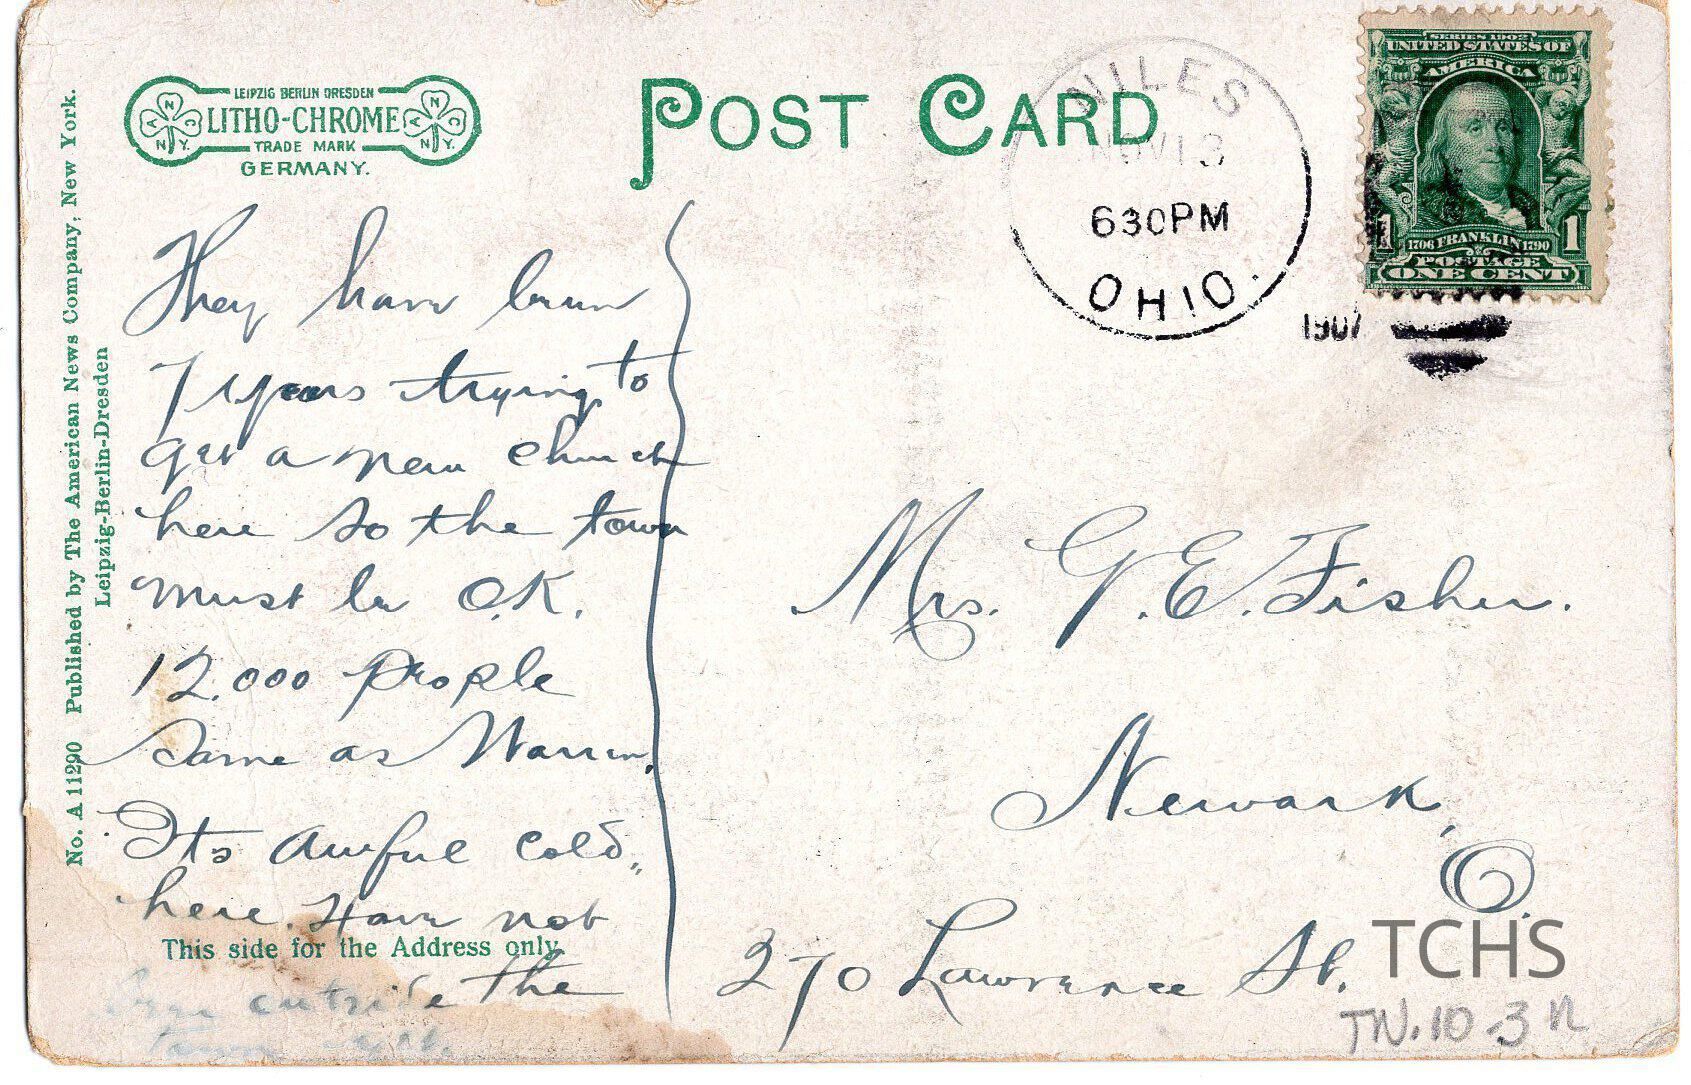 LEIPZIG BERLIN DRESDEN
LITHO-CHROME
TRADE MARK
GERMANY.
A N C N.Y.
A N C N.Y.
POST CARD
NILES
NOV 13
630PM
OHIO.
1907
SERIES 1902
UNITED STATES OF
AMERICA
1 1706 FRANKLIN 1790 1
POSTAGE
ONE CENT
No. A 11290 Published by The American News Company, New York.
Leipzig-Berlin-Dresden
They have been
7 years trying to
get a new church
here so the town
must be O.K.
12.000 people
same as Warren.
Its awful cold,
here. Have not
This side for the Address only.
been outside the
town yet.
Mrs. G. E. Fisher.
Newark,
O.
270 Lawrence St.
TCHS
TN.10-3 n